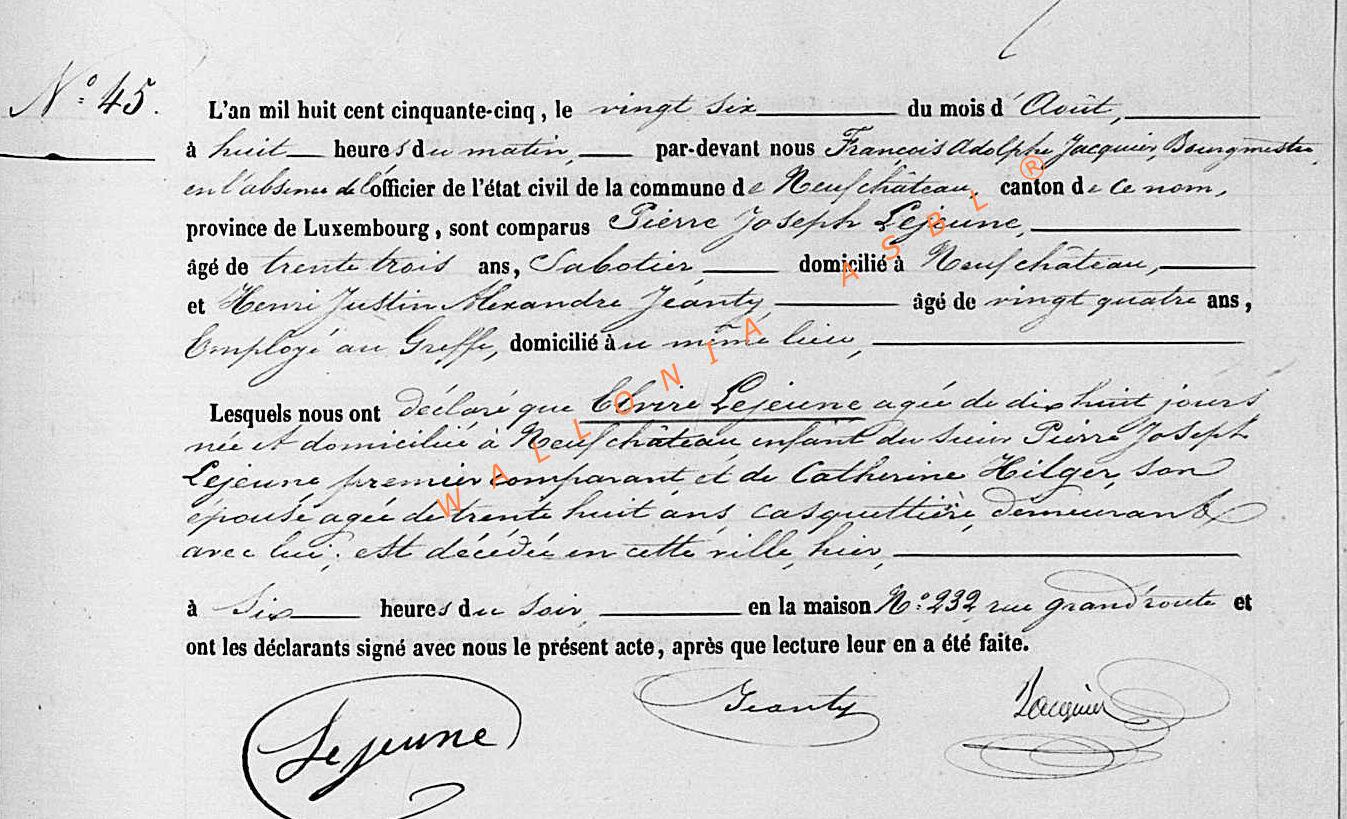 N.° 45.
L'an mil huit cent cinquante-cinq, le vingt six du mois d'Août,
à huit heures du matin, par-devant nous François Adolphe Jacquier, Bourgmestre,
en l'absence de l'officier de l'état civil de la commune de Neufchâteau, canton de ce nom,
province de Luxembourg, sont comparus Pierre Joseph Lejeune,
âgé de trente trois ans, Sabotier, domicilié à Neufchâteau,
et Henri Justin Alexandre Jeanty, âgé de vingt quatre ans,
Employé au Greffe, domicilié au même lieu,
Lesquels nous ont déclaré que Elvire Lejeune agée de dix huit jours
née et domiciliée à Neufchâteau, enfant du Sieur Pierre Joseph
Lejeune, premier comparant et de Catherine Hilger, son
épouse agée de trente huit ans, casquettière, demeurant
avec lui, est décédée en cette ville, hier,
à Six heures du Soir, en la maison N.° 232, rue grand'route et
ont les déclarants signé avec nous le présent acte, après que lecture leur en a été faite.
Lejeune Jeanty Jacquier
WALLONIA ASBL ®